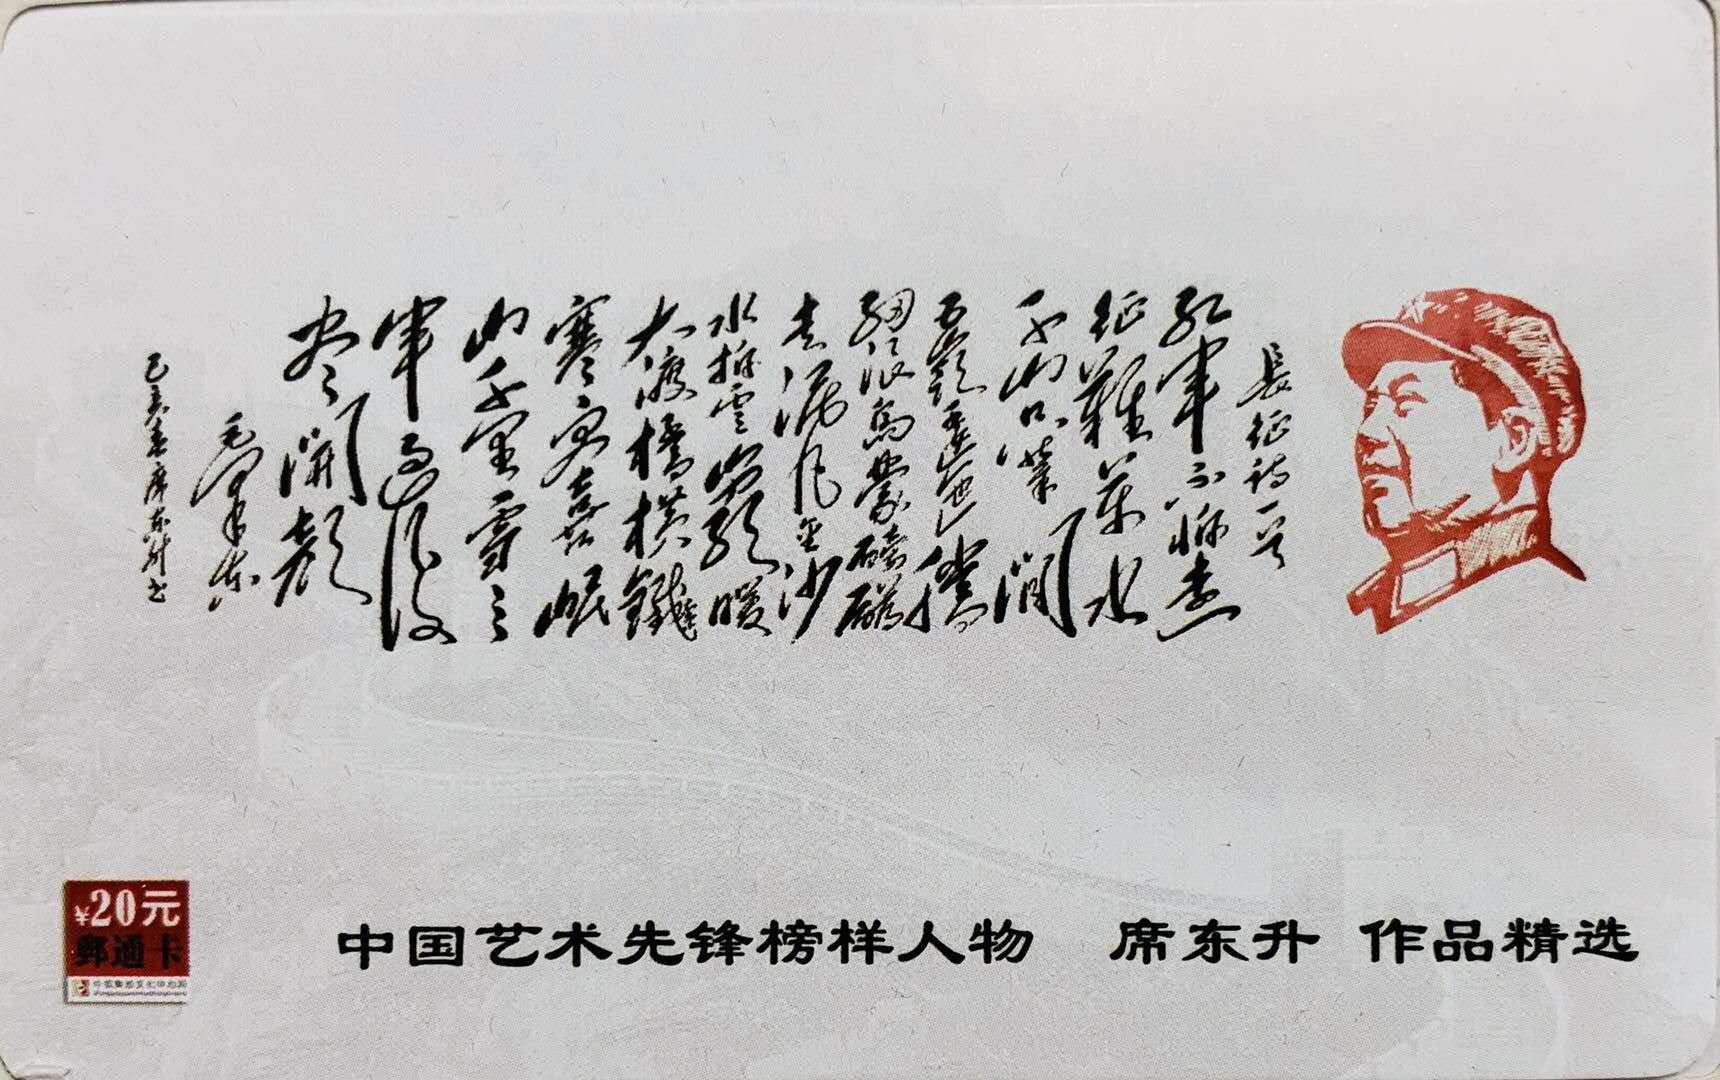 長征詩一首
紅軍不怕遠
征難萬水
千山只等閒
五嶺逶迤騰
細浪烏蒙磅礴
走泥丸金沙
水拍雲崖暖
大渡橋橫鐵
索寒更喜岷
山千里雪三
軍過後
盡開顏
毛澤東
己亥春席东升书
¥20元
郵通卡
中国艺术先锋榜样人物 席东升 作品精选